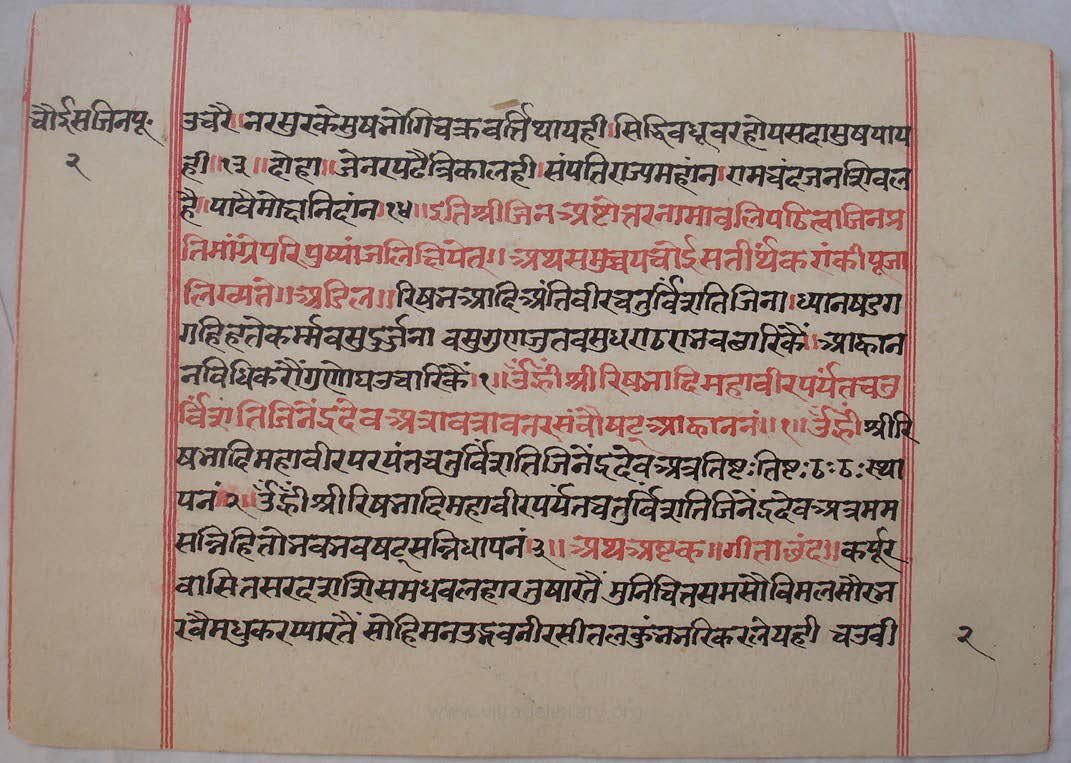 चौईसजिनपू॰
२
उचरै॥नरसुरकेसुषभोगिचक्रवर्त्तिथायही॥सिद्धिवधूवरहोयसदासुषपाय
ही॥१३॥दोहा॥जेनरपढैत्रिकालही॥संपतिराज्यमहांन॥रामचंदजनशिवल
है॥पावैमोक्षनिदांन॥१४॥इतिश्रीजिनअष्टोत्तरनामावलिपठित्वाजिनप्र
तिमांग्रेपरिपुष्पांजलिक्षिपेत्॥अथसमुच्चयचोईसतीर्थकरांकीपूजा
लिख्यते॥अडिल॥रिषभआदिअंतिवीरचतुर्विंशतिजिना॥ध्यानषडग
गहिहतेकर्म्मवसुदुर्जना वसुगुणजुतवसुधराठराभवछारिकैं॥आह्वान
नविधिकरौंगुणोघउचारिकैं॥१॥ॐह्रींश्रीरिषभादिमहावीरपर्यंतचतु
र्विंशतिजिनेंद्रदेवअत्रावत्रावतरसंवौषट्आह्वाननं॥१॥ॐह्रींश्रीरि
षभादिमहावीरपरयंतचतुर्विंशतिजिनेंद्रदेवअत्रतिष्टःतिष्टःठःठःस्था
पनं२॥ॐह्रींश्रीरिषभादिमहावीरपर्यंतचतुर्विंशतिजिनेंद्रदेवअत्रमम
सन्निहितोभवभवषट्सन्निधापनं३॥अथअष्टक॥गीताछंद॥कर्पूर
वासितसरदशशिसमधवलहारतुषारतैं मुनिचित्तसमसौविमलसौरभ
रवैमधुकरप्यारतैं सोहिमनउद्भवनीरसीतलकुंभभरिकरलेयही चउवी
२
www.vitragvibrary.org